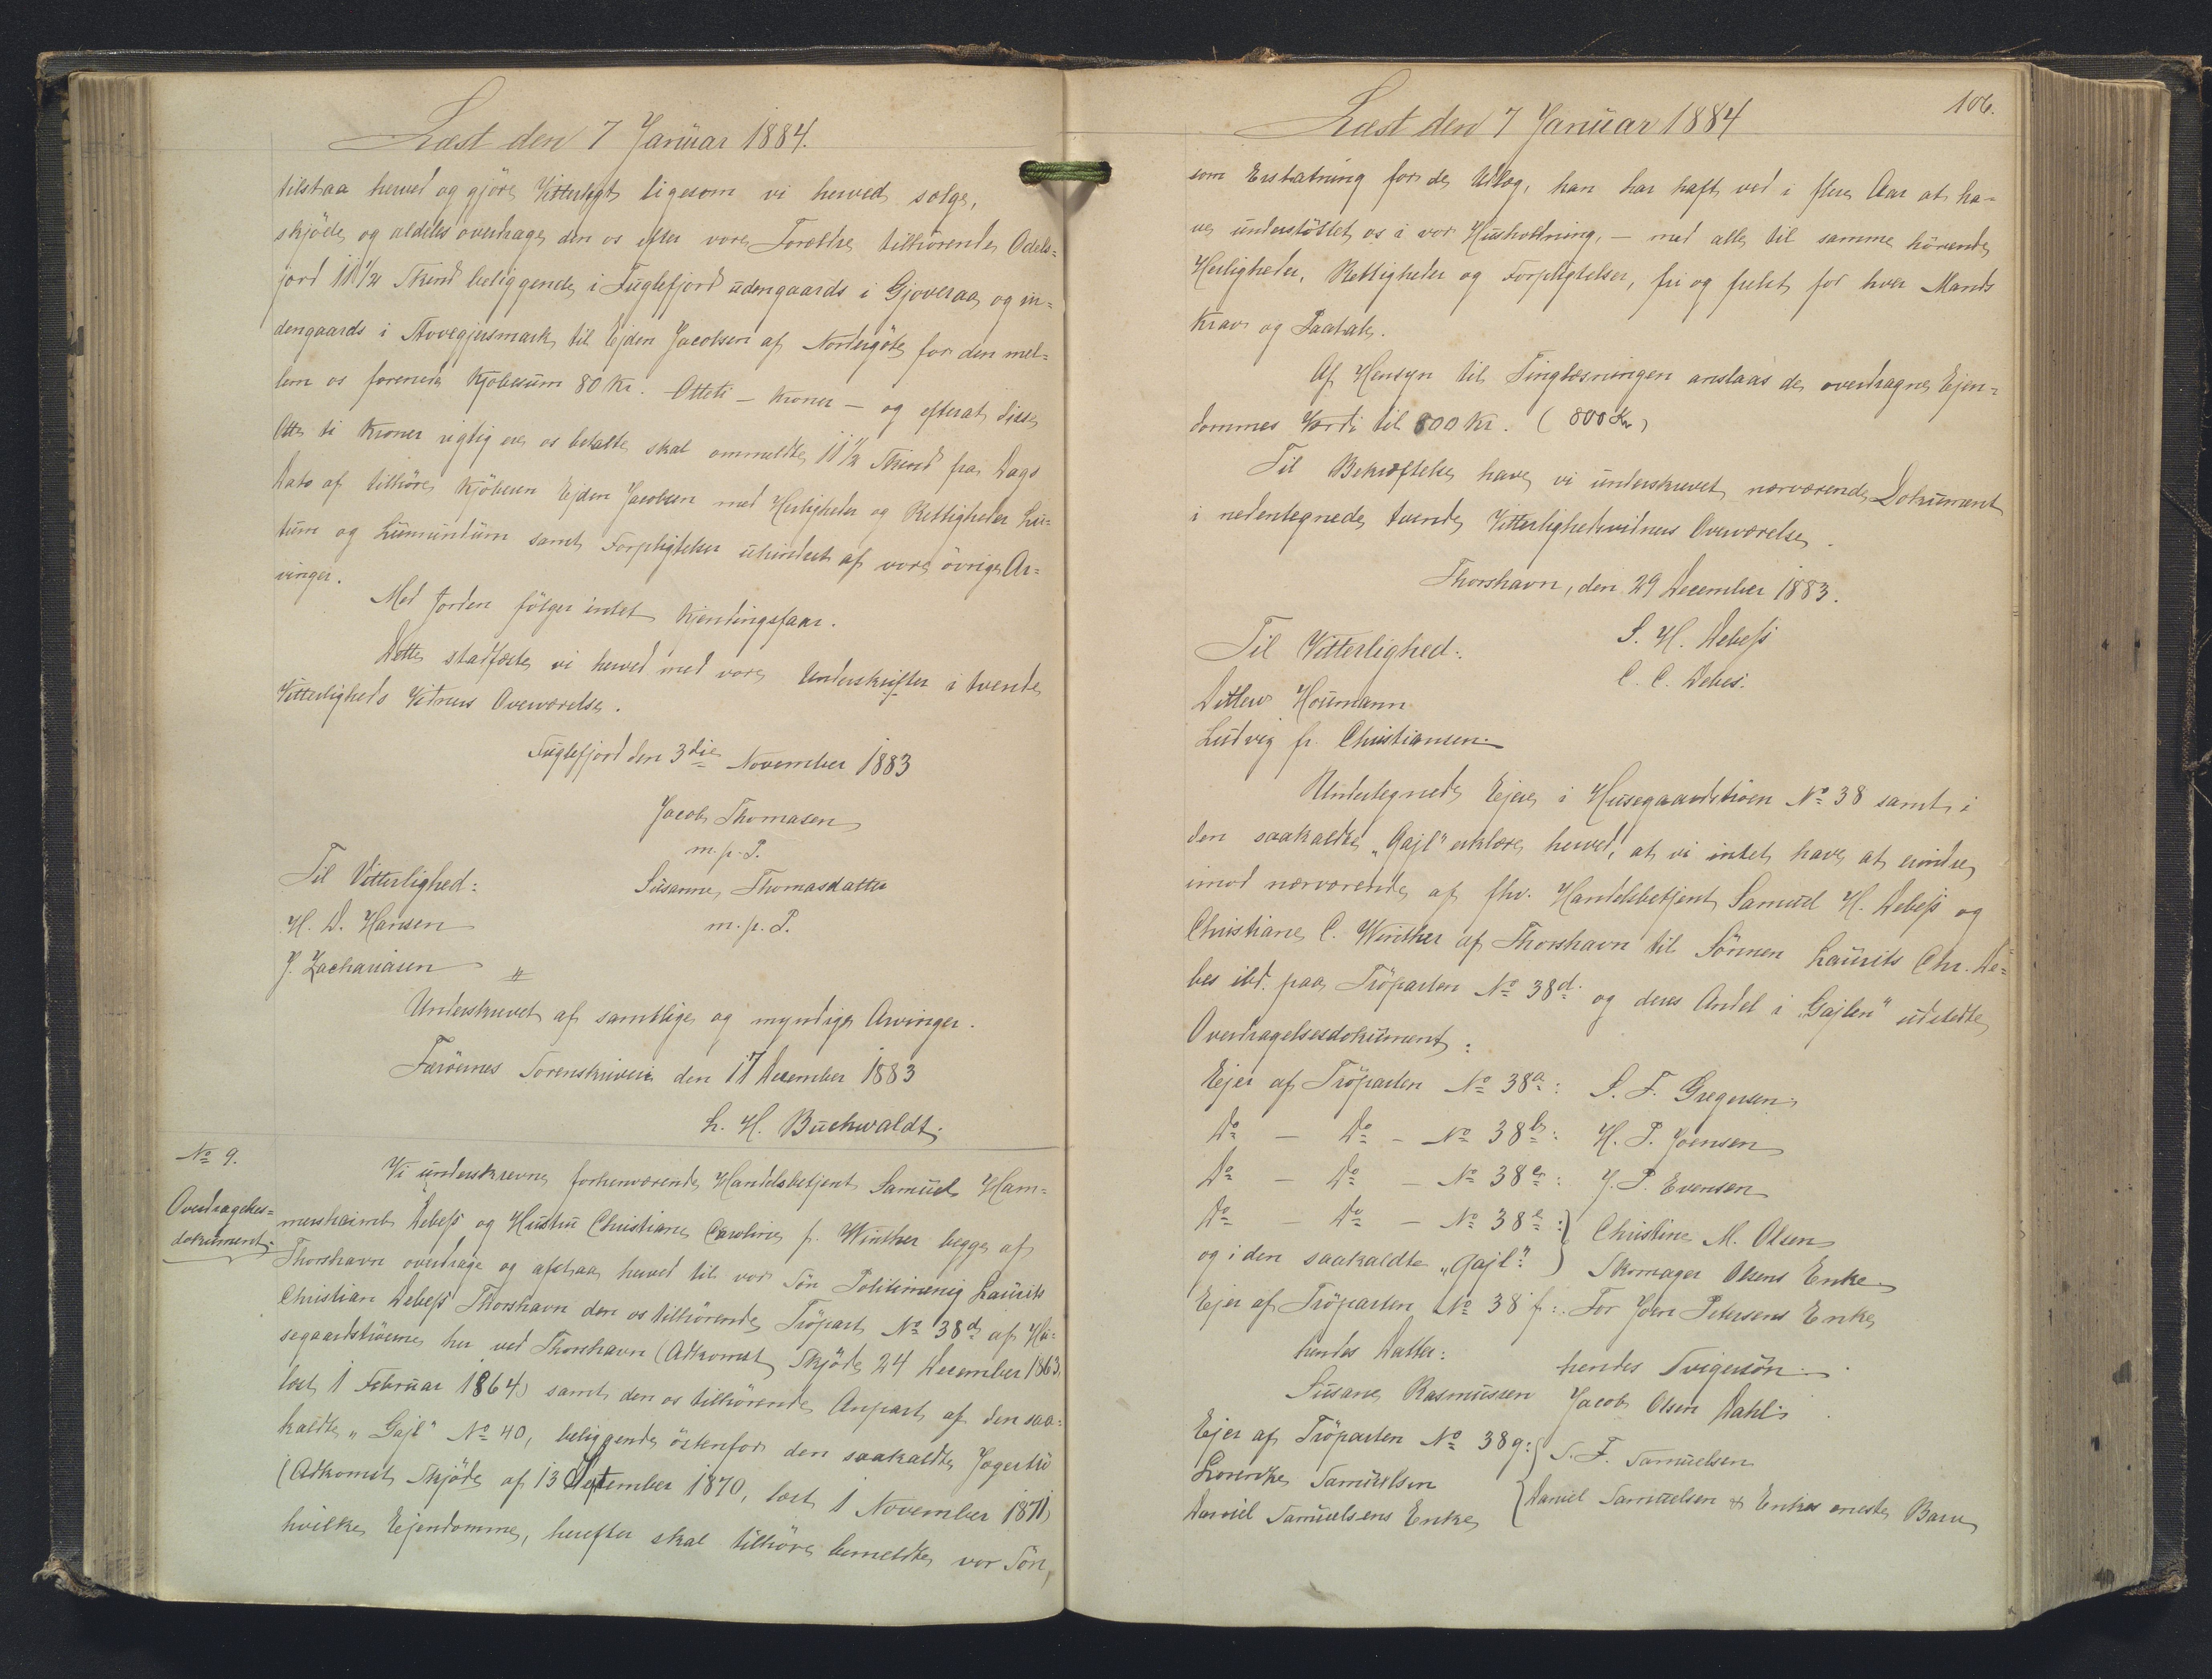 Læst den 7 Januar 1884.
tilstaa herved og gjøre Vitterligt ligesom vi herved sælge,
skjøde og aldeles overdrage den os efter vore Forældre tilhørende Odels=
jord 11 1/2 Skind beliggende i Fuglefjord udengaards i Gjoveraa og in=
dengaards i Stovegjersmark til Ejden Jacobsen af Nordregøte for den mel=
lem os forenede Kjøbesum 80 Kr. Otteti — Kroner — og efterat disse
Otte ti Kroner rigtig ere os betalte skal ommeldte 11 1/2 Skind fra Dags
Dato af tilhøre Kjøberen Ejden Jacobsen med Herligheder og Rettigheder Lu=
tum og Lumundum samt Forpligtelser uhindret af vore øvrige Ar=
vinger.
Med Jorden følger intet Kjendingsfaar.
Dette stadfæste vi herved med vore Underskrifter i tvende
Vitterligheds Vidners Overværelse.
Fuglefjord den 3die November 1883
Jacob Thomasen
m. p. P.
Til Vitterlighed:
Susanne Thomasdatter
H. D. Hansen
m. p. P.
J. Zachariasen
Underskrevet af samtlige og myndige Arvinger.
Færöernes Sorenskriveri den 17 December 1883
L. H. Buchwaldt.
No 9.
Overdragelses=
dokument.
Vi underskrevne forhenværende Handelsbetjent Samuel Ham=
mershaimb Debess og Hustru Christiane Caroline f. Winther begge af
Thorshavn overdrage og afstaa herved til vor Søn Politimenig Laurits
Christian Debess Thorshavn den os tilhørende Trøpart No 38d af Hu=
segaardstrøerne her ved Thorshavn (Adkomst Skjøde 24 December 1863,
læst 1 Februar 1864) samt den os tilhørende Anpart af den saa=
kaldte „Gajl" No 40, beliggende østenfor den saakaldte Jogertrø
(Adkomst Skjøde af 13 September 1870, læst 1 November 1871)
hvilke Ejendomme, herefter skal tilhøre bemeldte vor Søn,
Læst den 7 Januar 1884
106.
som Erstatning for de Udlæg, han har haft ved i flere Aar at ha=
ve understøttet os i vor Husholdning, — med alle til samme hørende
Herligheder, Rettigheder og Forpligtelser, fri og frelst for hver Mands
Krav og Paatale.
Af Hensyn til Tinglæsningen anslaas de overdragne Ejen=
dommes Værdi til 800 Kr. (800 Kr)
Til Bekræftelse have vi underskrevet nærværende Dokument
i nedentegnede tvende Vitterlighedsvidners Overværelse.
Thorshavn, den 29 December 1883.
S. H. Debess
Til Vitterlighed:
C. C. Debes.
Ditlev Houmann
Ludvig fr. Christiansen.
Undertegnede Ejere i Husegaardstrøen No 38 samt i
den saakaldte „Gajl" erklære herved, at vi intet have at erindre
imod nærværende af fhv. Handelsbetjent Samuel H. Debess og
Christiane C. Winther af Thorshavn til Sønnen Laurits Chr. De=
bes ibd. paa Trøparten No 38d. og deres Andel i „Gajlen" udstedte
Overdragelsesdokument:
Ejer af Trøparten No 38a: S. F. Gregersen,
Do — Do — No 38b: H. P. Joensen
Do — Do — No 38c: J. P. Evensen
Do — Do — No 38e: } Christine M. Olsen
og i den saakaldte „Gajl" } Skomager Olsens Enke
Ejer af Trøparten No 38 f: For Joen Petersens Enke
hendes Datter: hendes Svigersøn
Susane Rasmussen Jacob Olsen Dahl
Ejer af Trøparten No 38g: { S. F. Samuelsen
Samuelsen
Daniel Samuelsens Enke { Daniel Samuelsen & Enkes eneste Barn